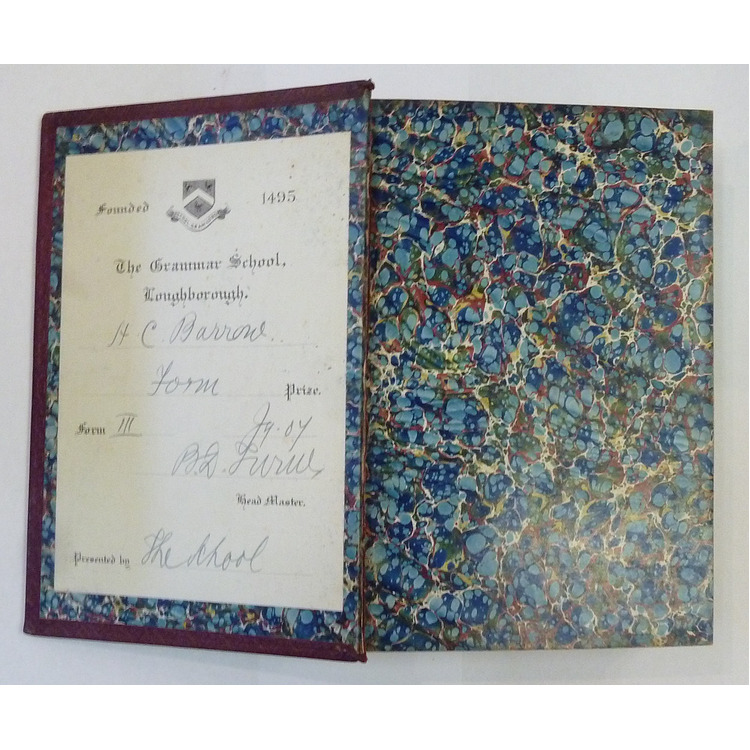 Founded 1495
The Grammar School,
Loughborough.
H C Barrow
Form Prize.
Form III Jy. 07
B. D. Turner
Head Master.
Presented by The School